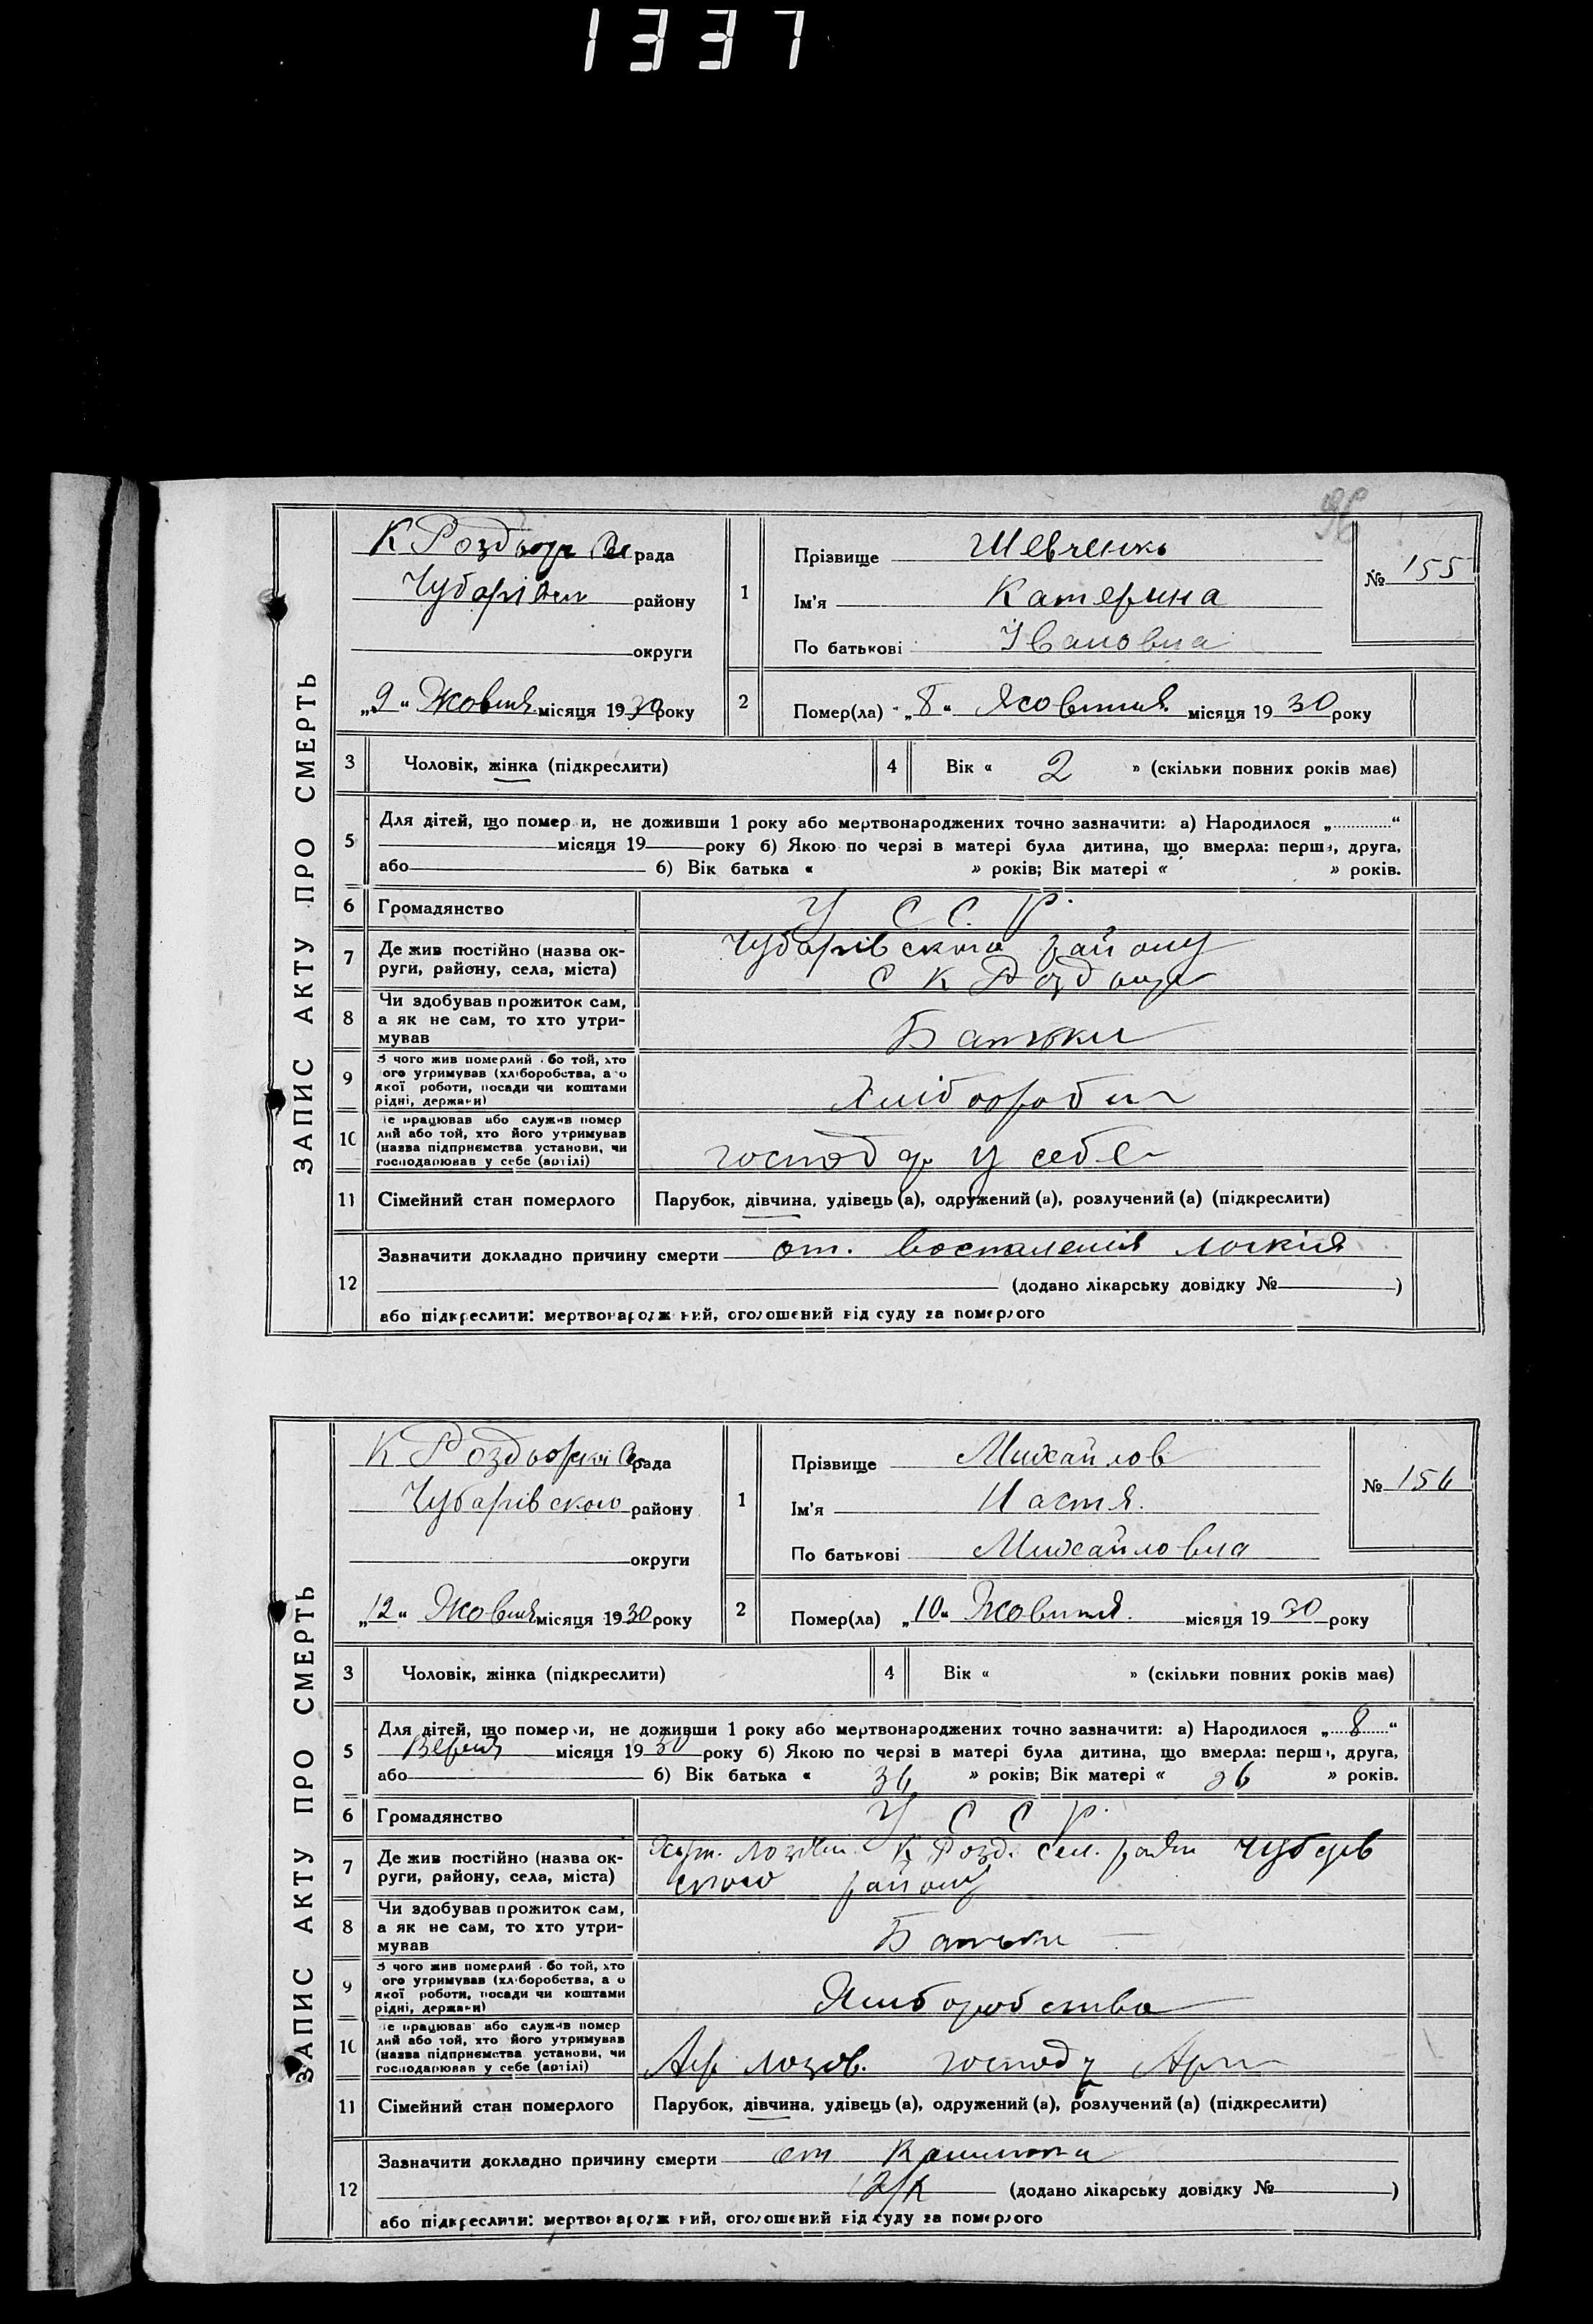 1337
96
ЗАПИС АКТУ ПРО СМЕРТЬ
К Роздорс рада
Чубарівск району
округи
„9“ Жовтня місяця 1930 року
1
Прізвище Шевченко
Ім'я Катерина
По батькові Івановна
№ 155
2
Помер(ла) „8“ Жовтня місяця 1930 року
3 Чоловік, жінка (підкреслити)
4 Вік « 2 » (скільки повних років має)
5
Для дітей, що помер и, не доживши 1 року або мертвонароджених точно зазначити: а) Народилося „ “
місяця 19 року б) Якою по черзі в матері була дитина, що вмерла: перша, друга,
або б) Вік батька « » років; Вік матері « » років.
6 Громадянство У С С Р.
7 Де жив постійно (назва ок-
руги, району, села, міста)
Чубарівського району
С К Роздори
8
Чи здобував прожиток сам,
а як не сам, то хто утри-
мував
Батьки
9
З чого жив померлий бо той, хто
ого утримував (хліборобства, а о
якої роботи, посади чи коштами
рідні, держави)
Хлібороби
10
е працював або служив помер
лий або той, хто його утримував
(назва підприємства установи, чи
господарював у себе (артілі)
господ у себе
11 Сімейний стан померлого Парубок, дівчина, удівець (а), одружений (а), розлучений (а) (підкреслити)
12
Зазначити докладно причину смерти от. воспаления
(додано лікарську довідку № )
або підкреслити: мертвонародж ний, оголошений від суду за померлого
ЗАПИС АКТУ ПРО СМЕРТЬ
К Роздорскі рада
Чубарівского району
округи
„12“ Жовтня місяця 1930 року
1
Прізвище Михайлов
Ім'я Настя.
По батькові Михайловна
№ 156
2
Помер(ла) „10“ Жовтня. місяця 1930 року
3 Чоловік, жінка (підкреслити)
4 Вік « » (скільки повних років має)
5
Для дітей, що помер и, не доживши 1 року або мертвонароджених точно зазначити: а) Народилося „8“
місяця 1930 року б) Якою по черзі в матері була дитина, що вмерла: перша, друга,
або б) Вік батька « 36 » років; Вік матері « 26 » років.
6 Громадянство У С С Р.
7 Де жив постійно (назва ок-
руги, району, села, міста)
Хут. К Розд. сел. ради Чубарів
ского району
8
Чи здобував прожиток сам,
а як не сам, то хто утри-
мував
Батьки
9
З чого жив померлий бо той, хто
ого утримував (хліборобства, а о
якої роботи, посади чи коштами
рідні, держави)
Хліборобства
10
е працював або служив помер
лий або той, хто його утримував
(назва підприємства установи, чи
господарював у себе (артілі)
Лозов. господ
11 Сімейний стан померлого Парубок, дівчина, удівець (а), одружений (а), розлучений (а) (підкреслити)
12
Зазначити докладно причину смерти от
(додано лікарську довідку № )
або підкреслити: мертвонародж ний, оголошений від суду за померлого